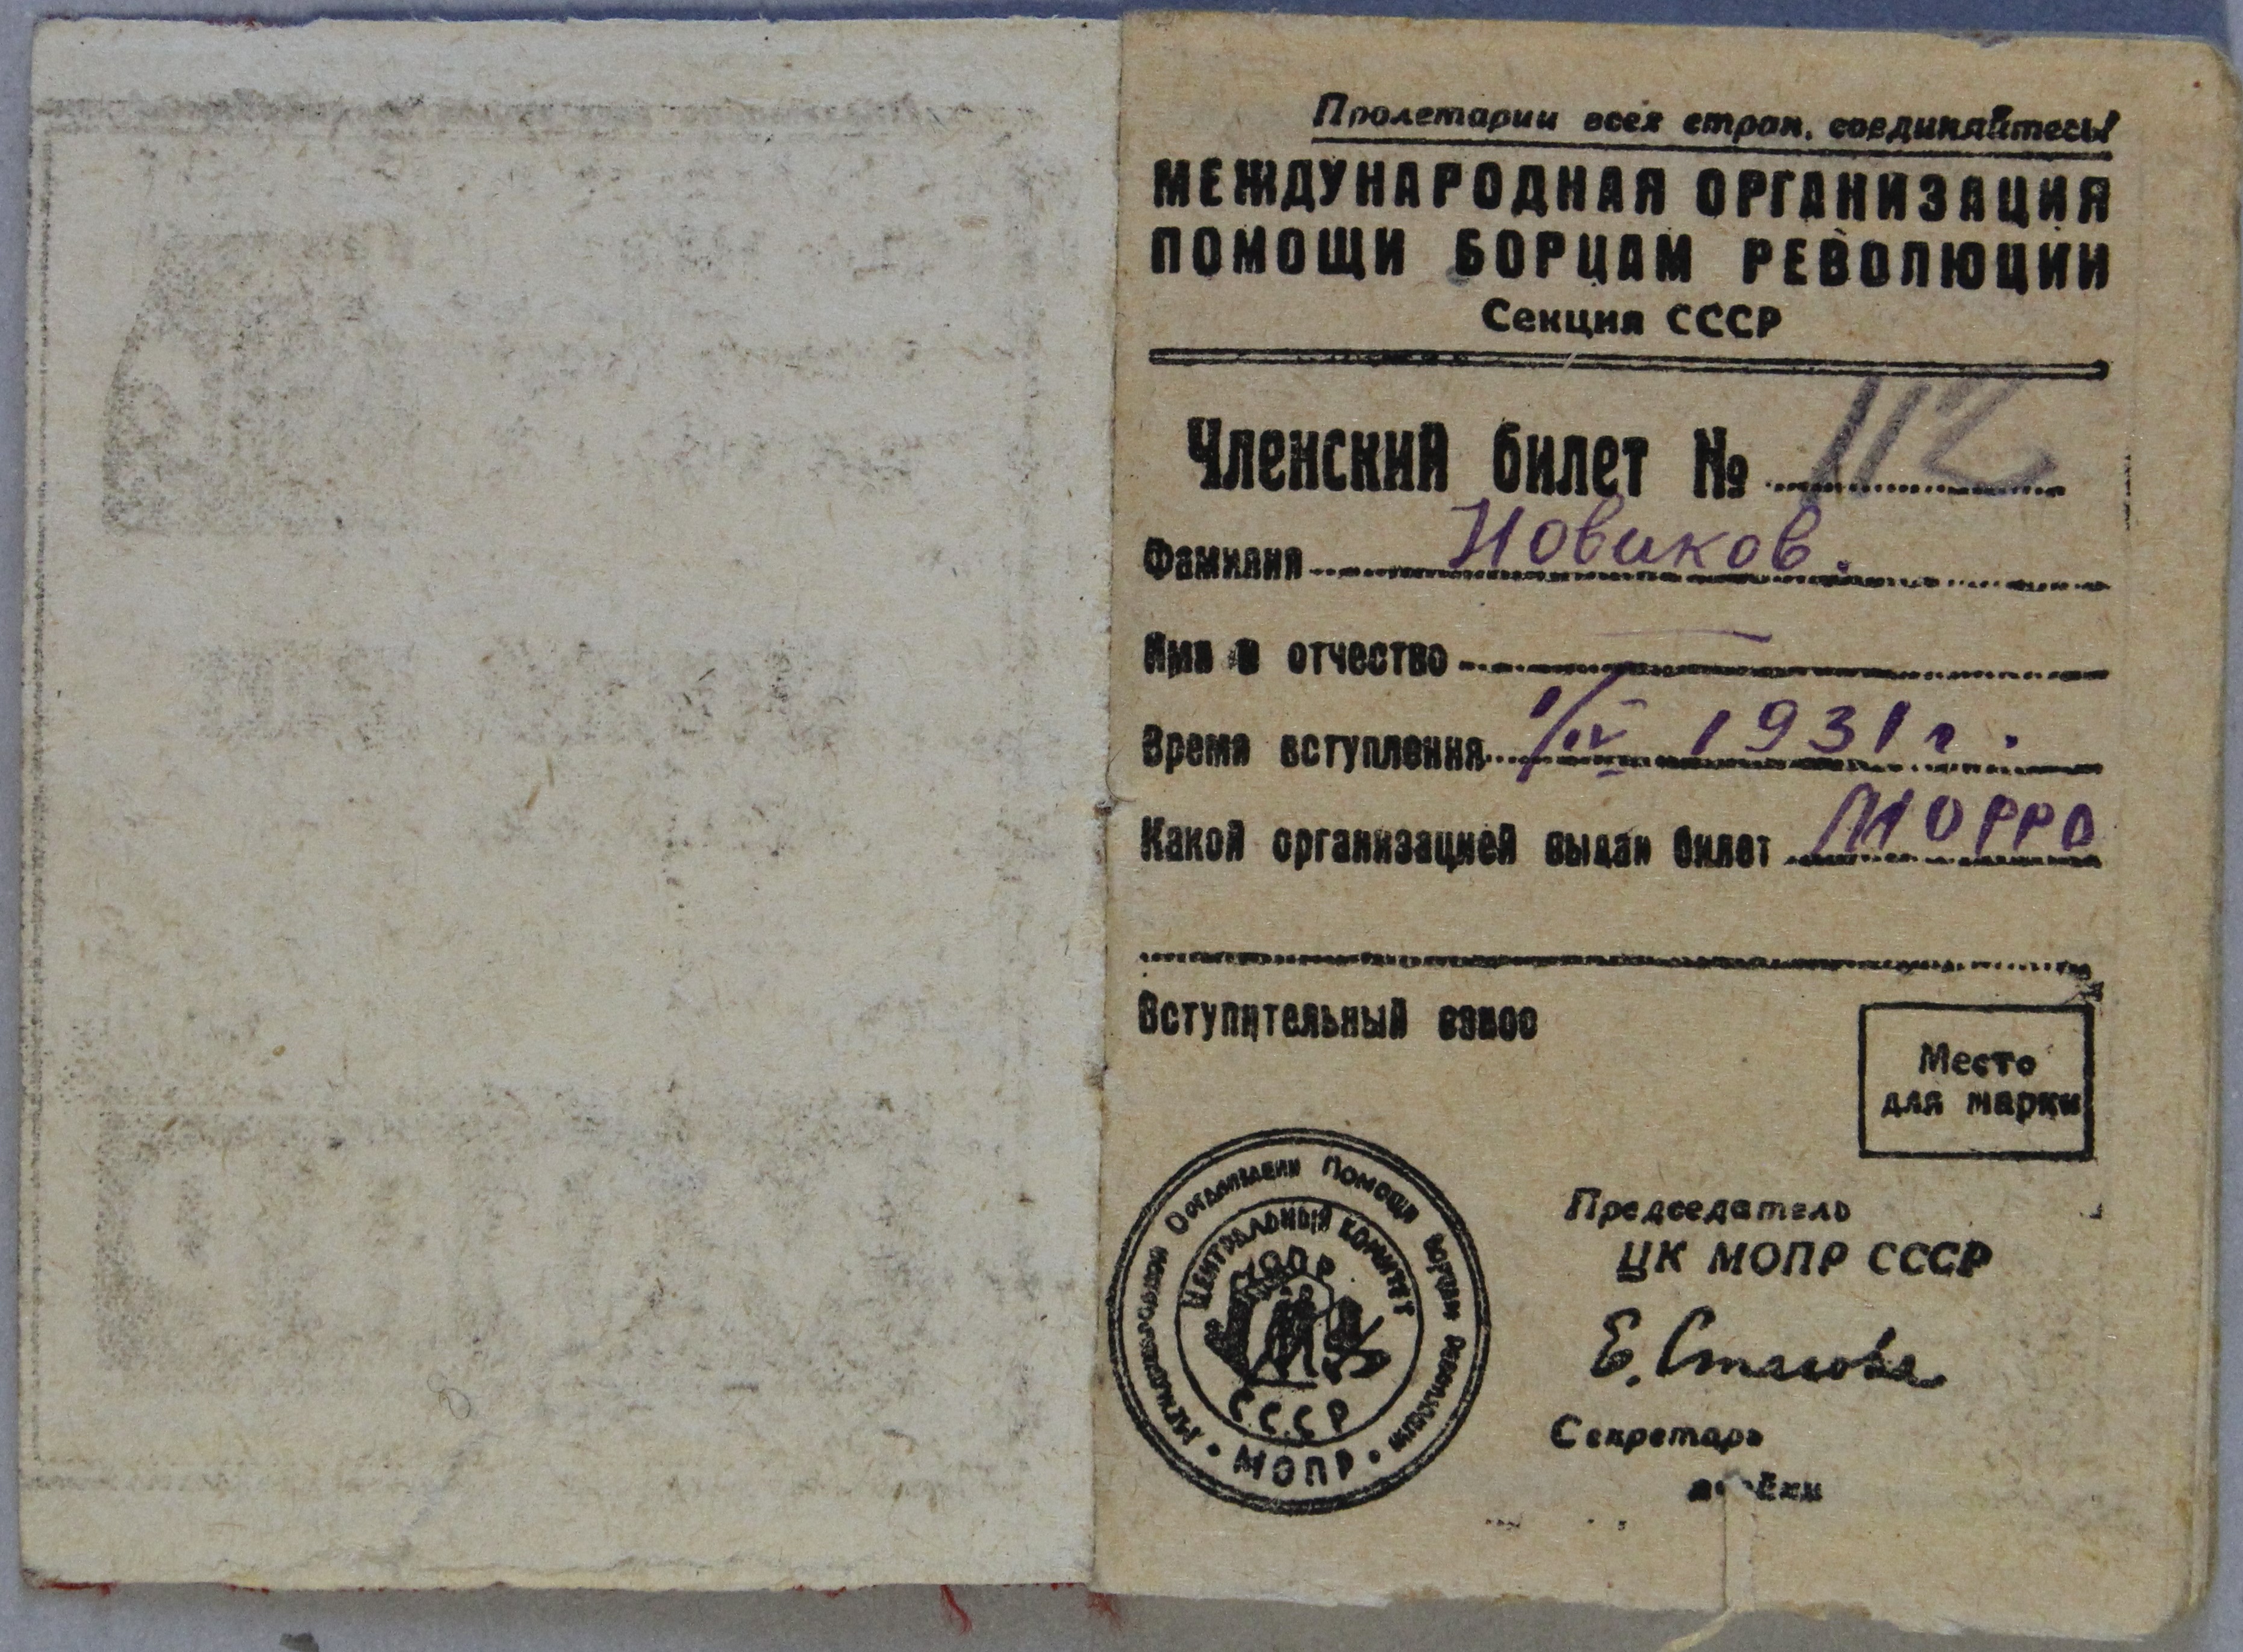 Пролетарии всех стран, соединяйтесь!
МЕЖДУНАРОДНАЯ ОРГАНИЗАЦИЯ
ПОМОЩИ БОРЦАМ РЕВОЛЮЦИИ
Секция СССР
Членский билет № 112
Фамилия Новиков.
Имя и отчество
Время вступления 1/IV 1931 г.
Какой организацией выдан билет
Вступительный взнос
Место
для марки
Международная Организация Помощи Борцам Революции
ЦЕНТРАЛЬНЫЙ КОМИТЕТ
МОПР
СССР
• МОПР •
Председатель
ЦК МОПР СССР
Е. Стасова
Секретарь
ячейки